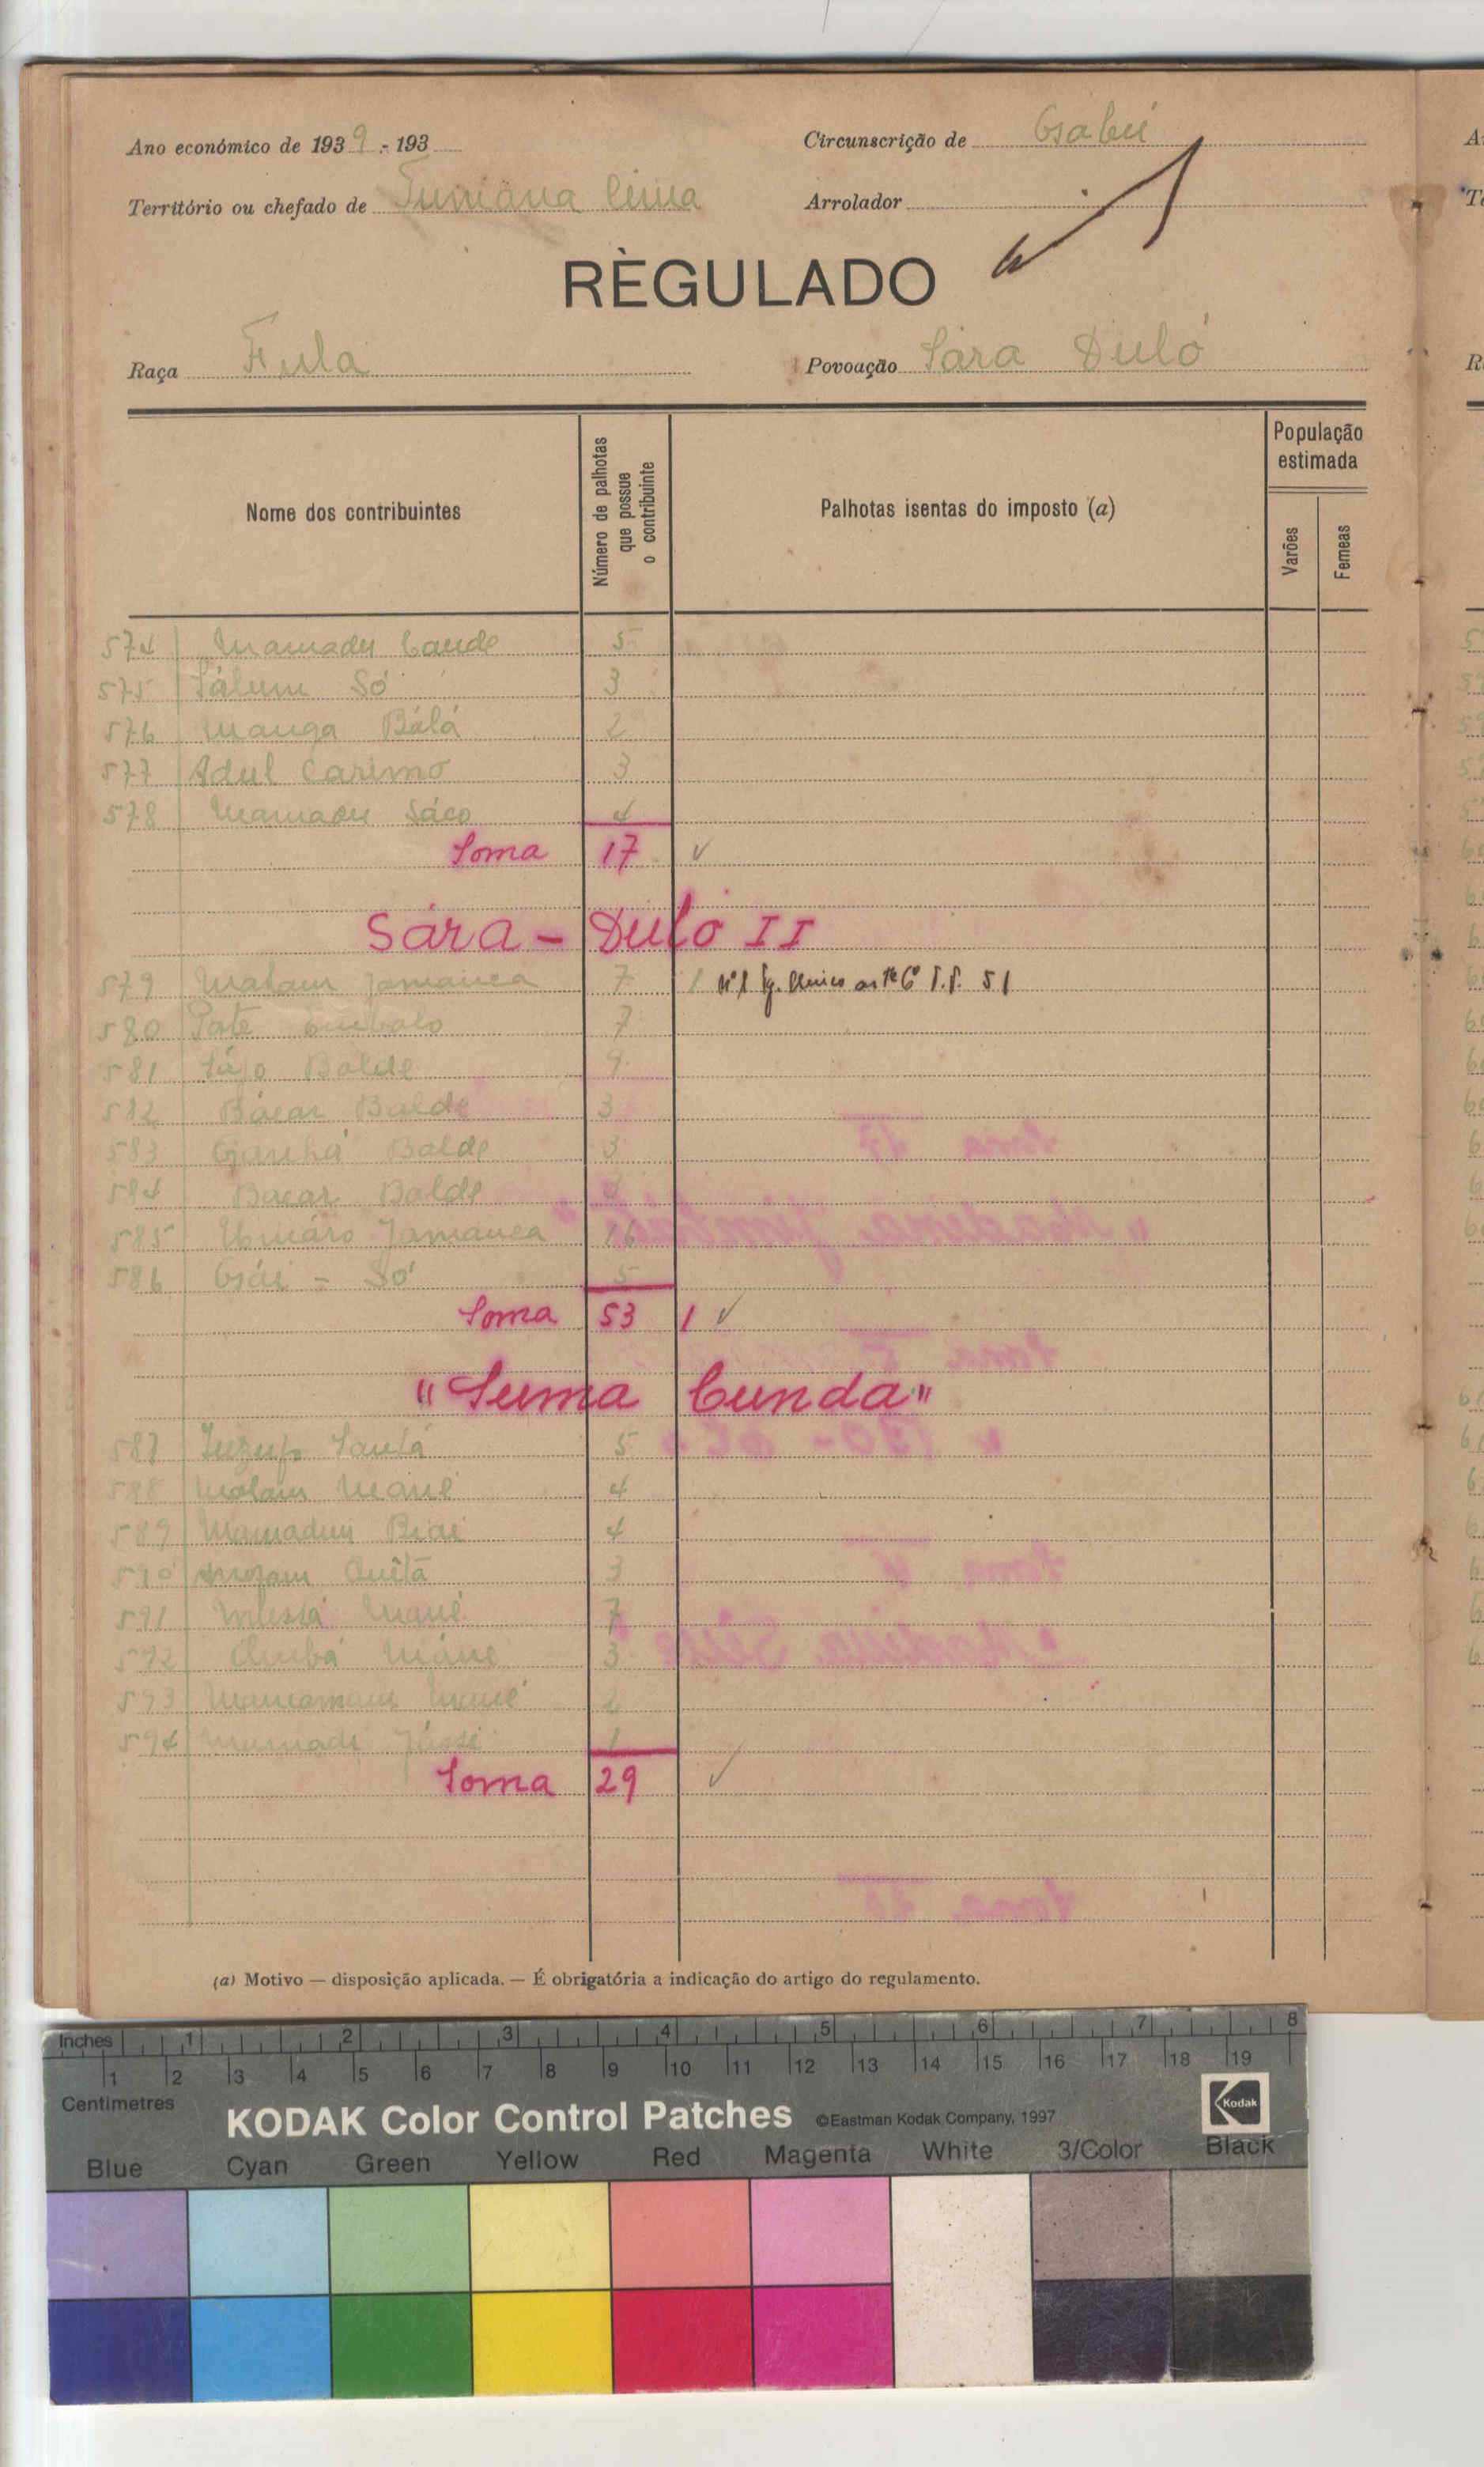 Ano económico de 1939 - 193
Circunscrição de Gabú
Território ou chefado de Tumána Cima
Arrolador
RÈGULADO
Raça Fula
Povoação Sara Duló
Nome dos contribuintes
Número de palhotas que possue o contribuinte
Palhotas isentas do imposto (a)
População estimada
Varões
Femeas
574 Mamadu Cande 5
575 Só 3
576 Manga Bálá 2
577 Adul Carimo 3
578 Mamadu Sáco 4
Soma 17 ✓
Sára - Duló II
579 Malam Jamanca 7 1 Nº 1
580 Pate Embalo 7
581 Balde 9
582 Bácar Balde 3
583 Balde 3
584 Bacar Balde
585 Umáro Jamanca 16
586 Só 5
Soma 53 1 ✓
"Suma Cunda"
587 5
588 Malam Mané 4
589 Mamadu Biai 4
590 Quêtá 3
591 Mané 7
592 Mané 3
593 Mané 2
594 Mamadi 1
Soma 29 ✓
(a) Motivo — disposição aplicada. — É obrigatória a indicação do artigo do regulamento.
Inches 1 2 3 4 5 6 7 8
1 2 3 4 5 6 7 8 9 10 11 12 13 14 15 16 17 18 19
Centimetres
KODAK Color Control Patches ©Eastman Kodak Company, 1997 Kodak
Blue Cyan Green Yellow Red Magenta White 3/Color Black